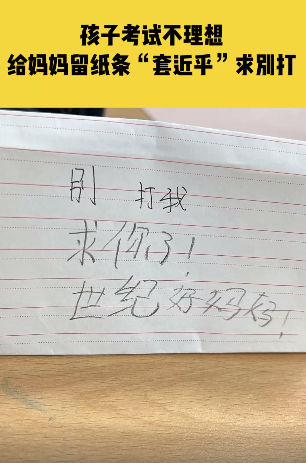 孩子考试不理想
给妈妈留纸条“套近乎”求别打
别 打我
求你了!
世纪好妈妈!